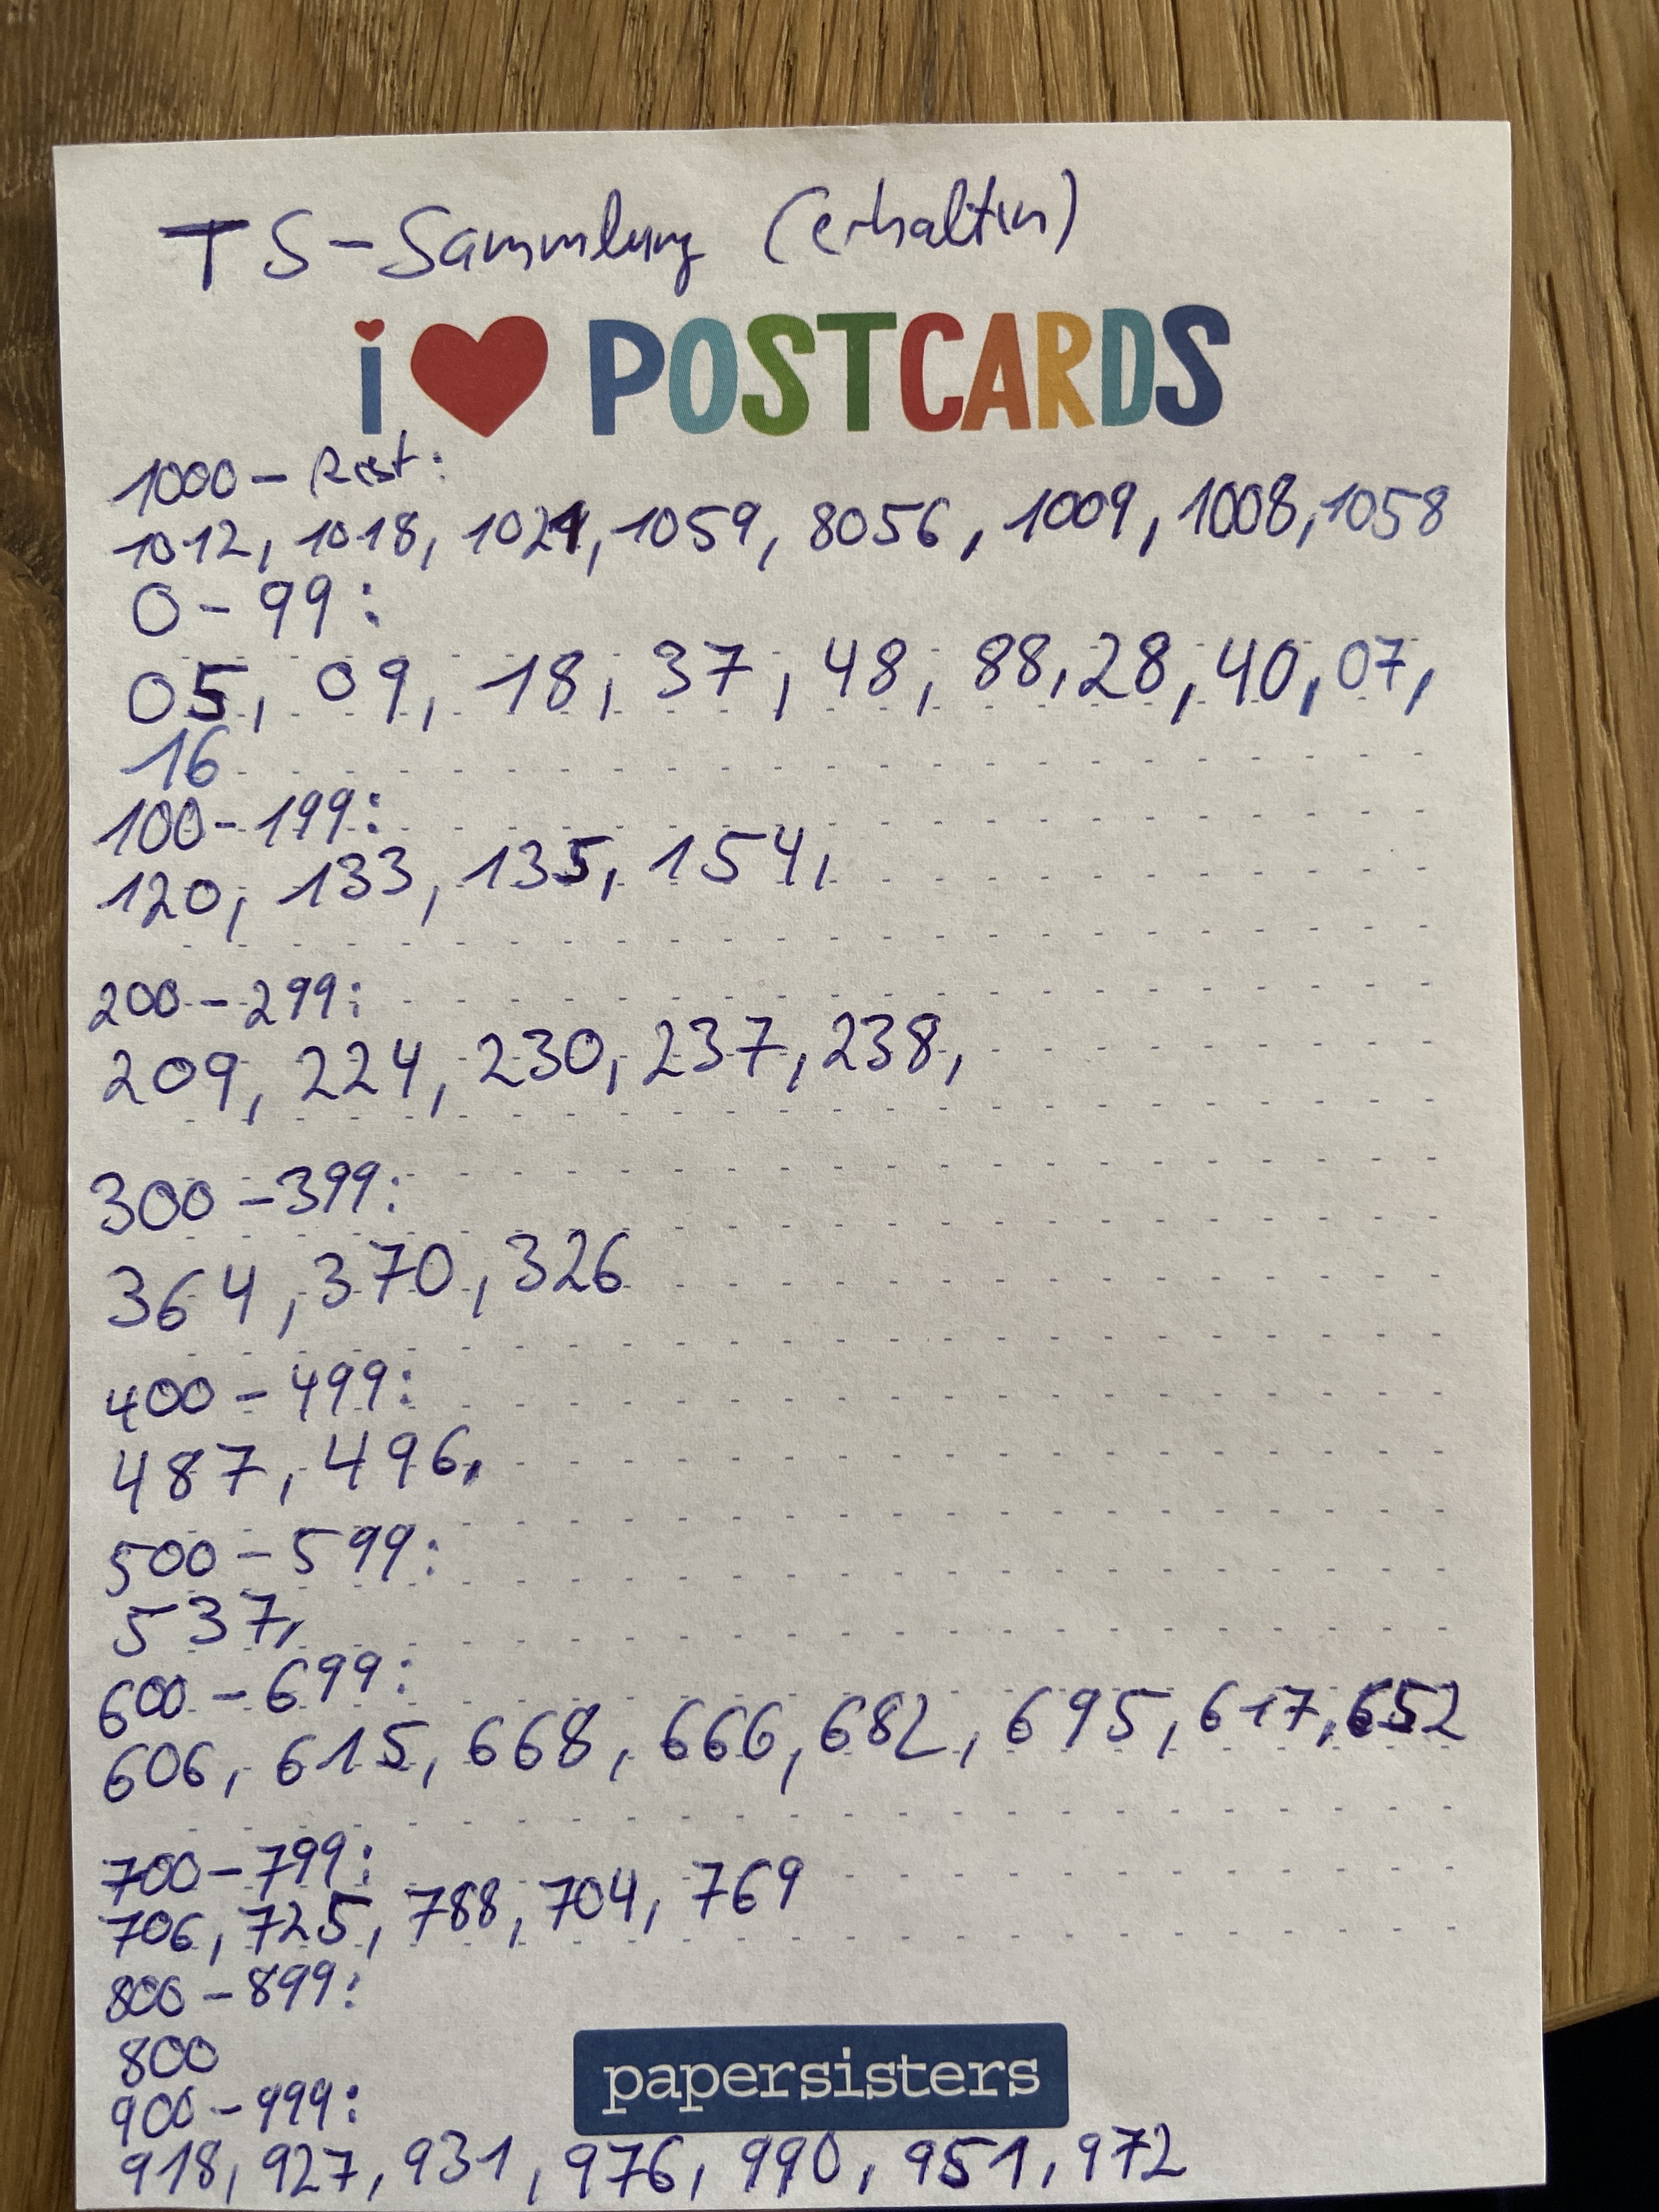 TS-Sammlung (erhalten)
i ♥ POSTCARDS
1000 - Rest:
1012, 1018, 1021, 1059, 8056, 1009, 1008, 1058
0 - 99:
05, 09, 18, 37, 48, 88, 28, 40, 07,
16
100 - 199:
120, 133, 135, 154,
200 - 299:
209, 224, 230, 237, 238,
300 - 399:
364, 370, 326
400 - 499:
487, 496,
500 - 599:
537,
600 - 699:
606, 615, 668, 666, 682, 695, 617, 652
700 - 799:
706, 725, 788, 704, 769
800 - 899:
800
900 - 999:
papersisters
918, 927, 931, 976, 990, 951, 972